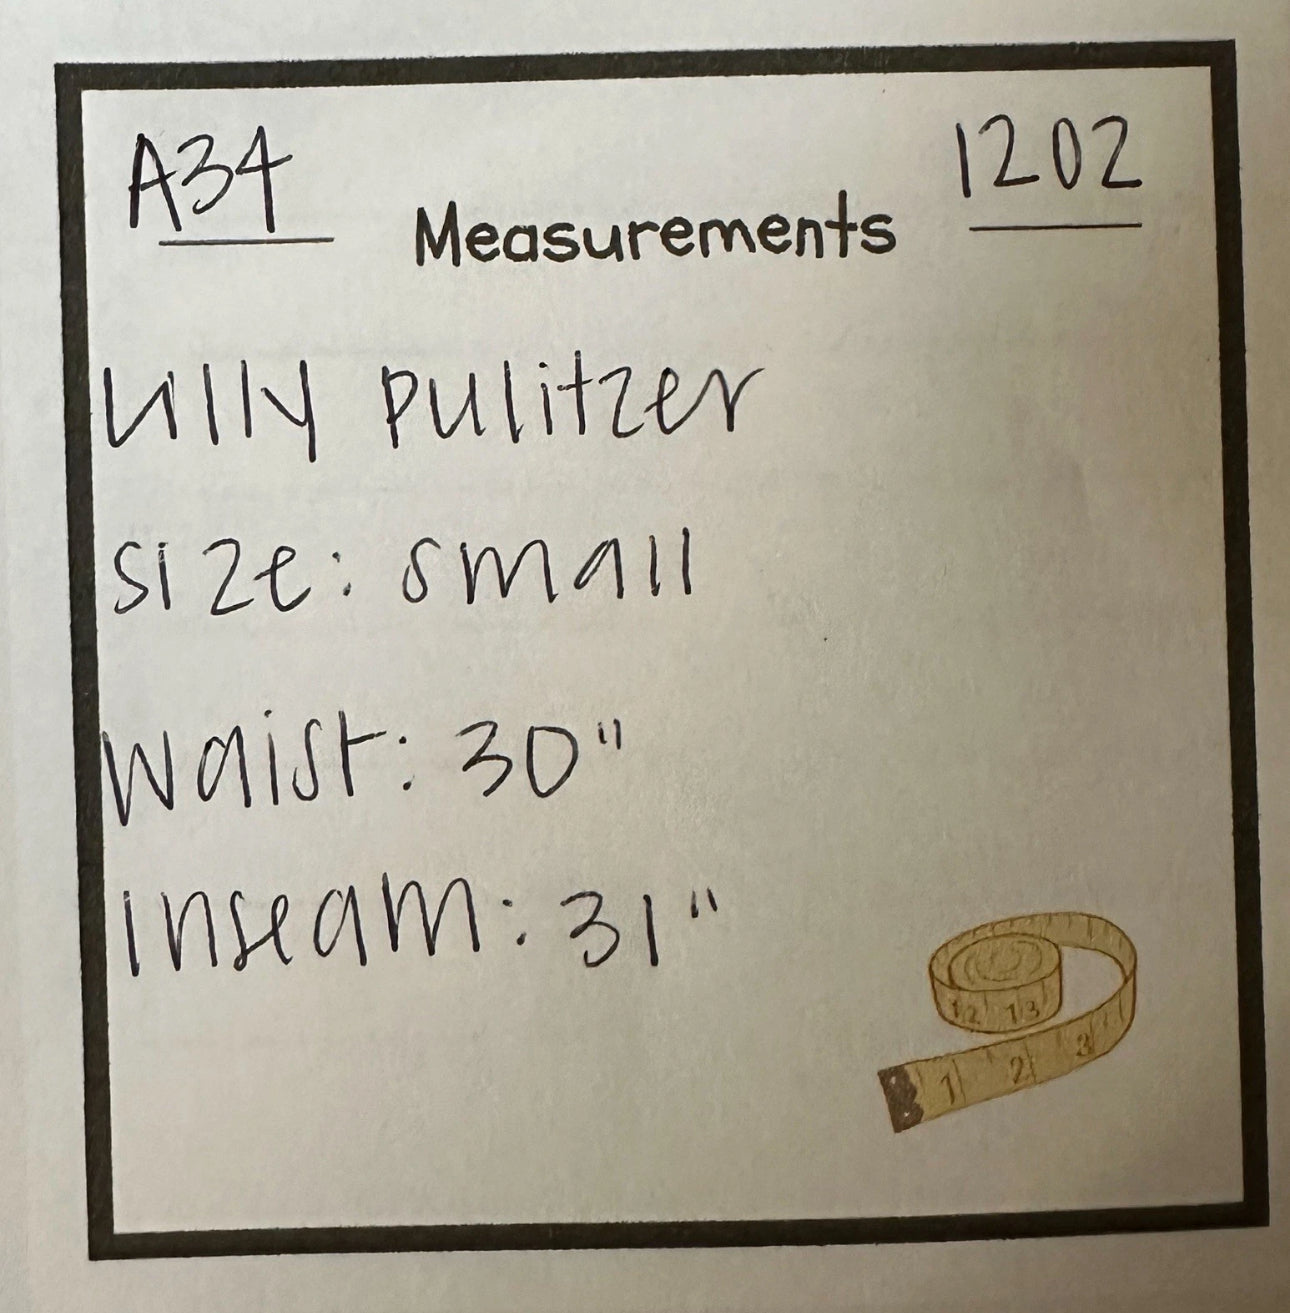 A34 1202
Measurements
Lilly pulitzer
size: small
waist: 30"
inseam: 31"
12 13
1 2 3